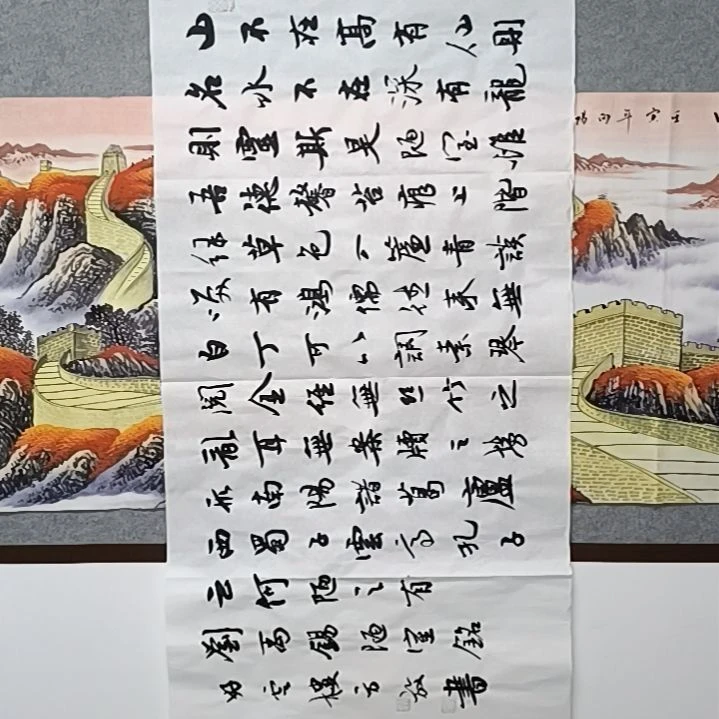 山不在高有仙則
名水不在深有龍
則靈斯是陋室惟
吾德馨苔痕上階
綠草色入簾青談
笑有鴻儒往來無
白丁可以調素琴
閱金經無絲竹之
亂耳無案牘之勞
形南陽諸葛廬
西蜀子雲亭孔子
云何陋之有
劉禹錫陋室銘
書
壬寅年向